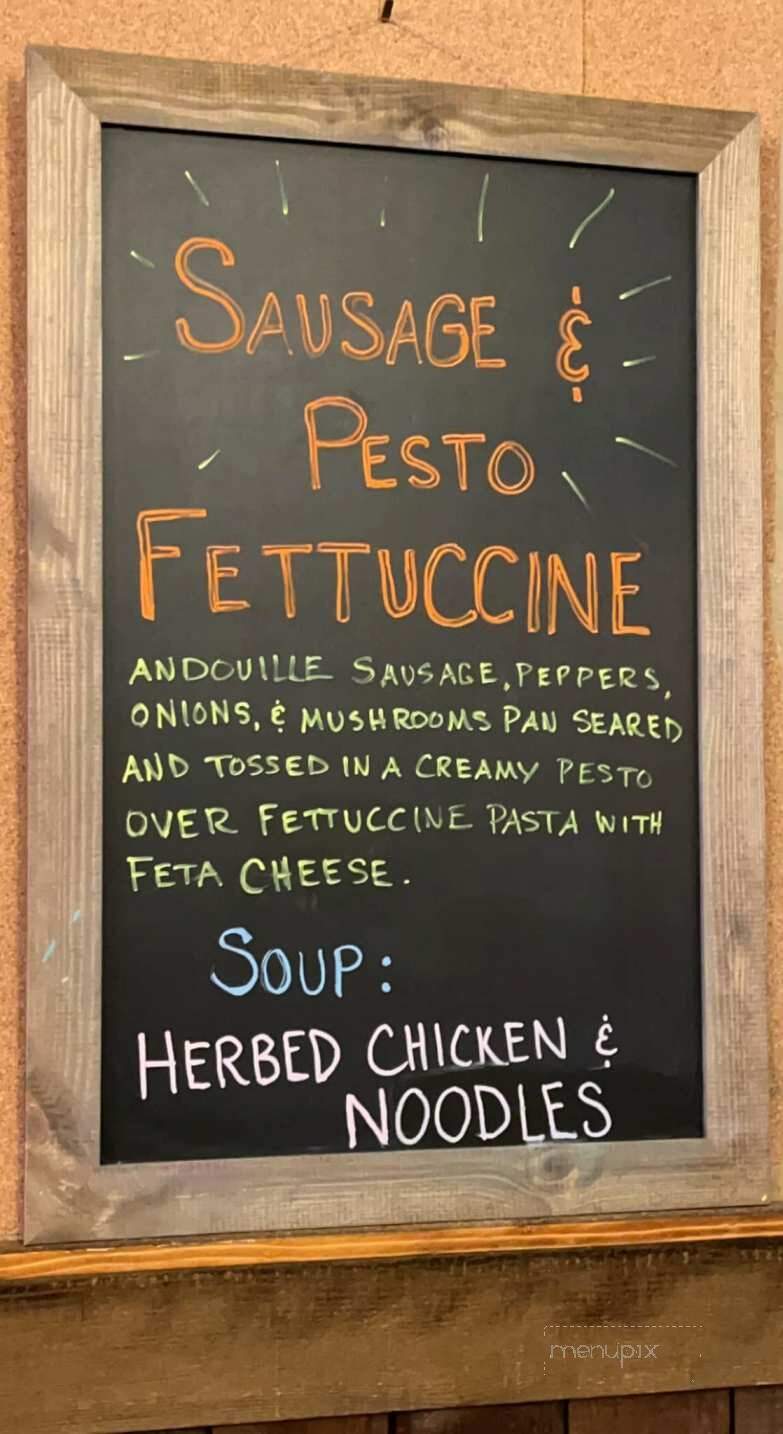 SAUSAGE &
PESTO
FETTUCCINE
ANDOUILLE SAUSAGE, PEPPERS,
ONIONS, & MUSHROOMS PAN SEARED
AND TOSSED IN A CREAMY PESTO
OVER FETTUCCINE PASTA WITH
FETA CHEESE.
SOUP:
HERBED CHICKEN &
NOODLES
menupix